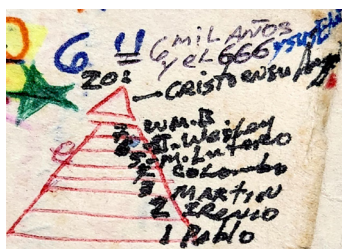 6 U 6 MIL AÑOS
y el 666
203
CRISTO EN SU
7 W.M.B
6 J. Wesley
5 M. Lutero
4 COLOMBO
3 MARTIN
2 IRENIO
1 PABLO